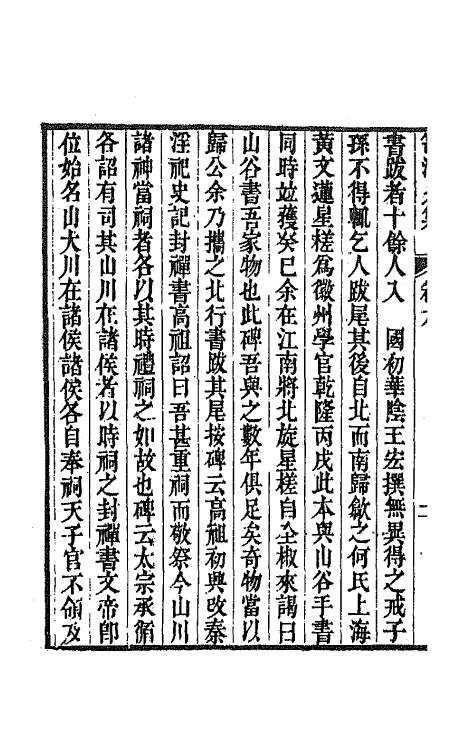 書跋者十餘人入　國初華陰王宏撰無異得之戒子
孫不得輒乞人跋尾其後自北而南歸歙之何氏上海
黃文蓮星槎爲徽州學官乾隆丙戌此本與山谷手書
同時竝獲癸巳余在江南將北旋星槎自全椒來謁曰
山谷書吾家物也此碑吾與之數年俱足矣奇物當以
歸公余乃攜之北行書跋其尾按碑云高祖初興改秦
淫祀史記封禪書高祖詔曰吾甚重祠而敬祭今山川
諸神當祠者各以其時禮祠之如故也碑云太宗承循
各詔有司其山川在諸侯者以時祠之封禪書文帝卽
位始名山大川在諸侯諸侯各自奉祠天子官不領及